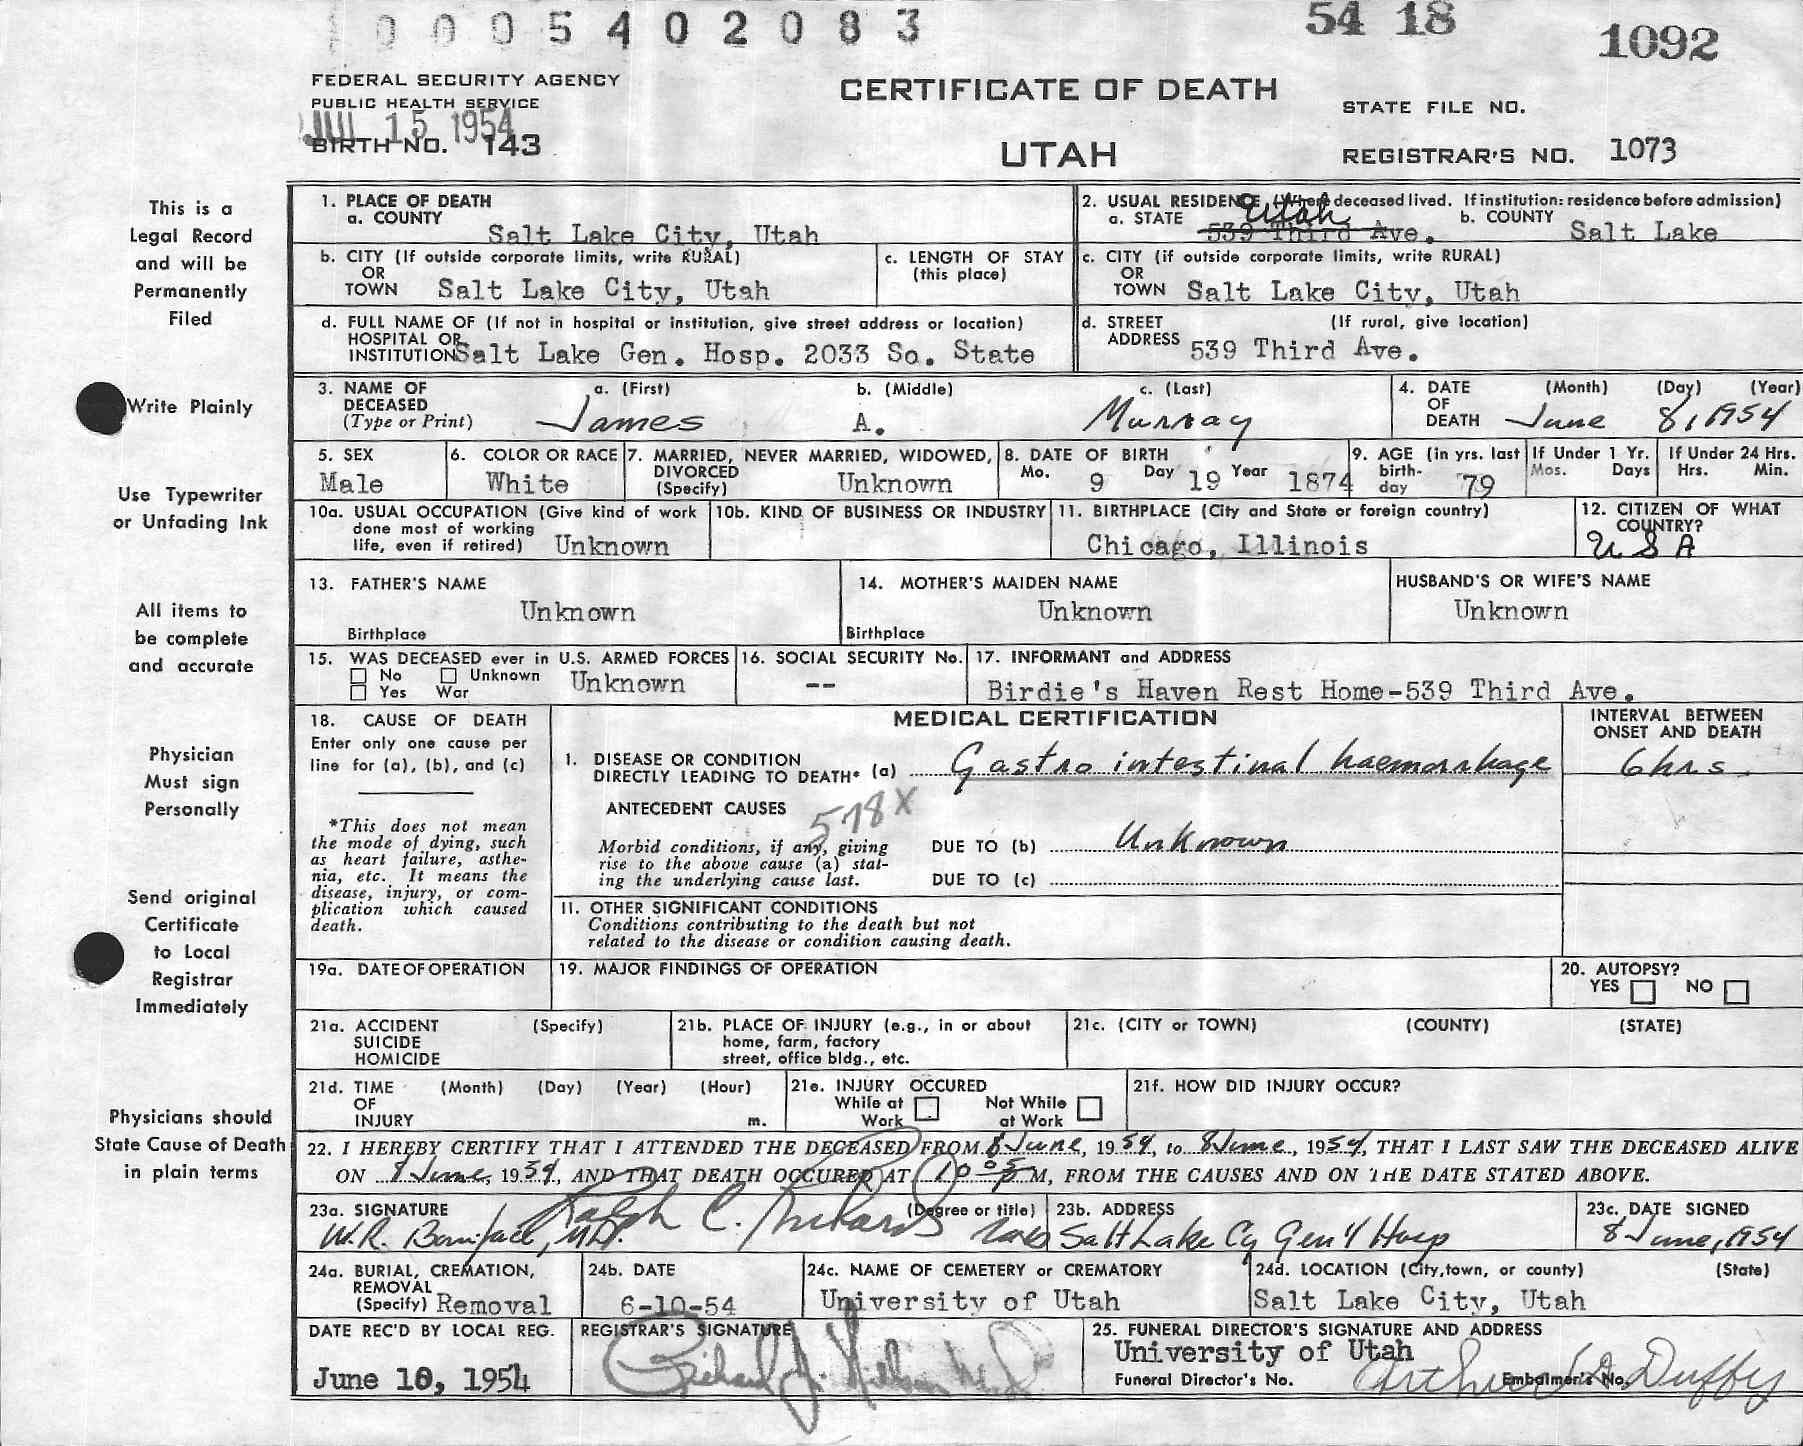 0005402083
54 18
1092
FEDERAL SECURITY AGENCY
PUBLIC HEALTH SERVICE
JUL 15 1954
BIRTH NO. 143
CERTIFICATE OF DEATH
UTAH
STATE FILE NO.
REGISTRAR'S NO. 1073
This is a
Legal Record
and will be
Permanently
Filed
Write Plainly
Use Typewriter
or Unfading Ink
All items to
be complete
and accurate
Physician
Must sign
Personally
Send original
Certificate
to Local
Registrar
Immediately
Physicians should
State Cause of Death
in plain terms
1. PLACE OF DEATH
a. COUNTY
Salt Lake City, Utah
2. USUAL RESIDENCE (Where deceased lived. If institution: residence before admission)
a. STATE Utah 539 Third Ave. b. COUNTY Salt Lake
b. CITY (If outside corporate limits, write RURAL)
OR
TOWN Salt Lake City, Utah
c. LENGTH OF STAY
(this place)
c. CITY (if outside corporate limits, write RURAL)
OR
TOWN Salt Lake City, Utah
d. FULL NAME OF (If not in hospital or institution, give street address or location)
HOSPITAL OR
INSTITUTION Salt Lake Gen. Hosp. 2033 So. State
d. STREET (If rural, give location)
ADDRESS 539 Third Ave.
3. NAME OF a. (First) b. (Middle) c. (Last)
DECEASED
(Type or Print) James A. Murray
4. DATE (Month) (Day) (Year)
OF
DEATH June 8, 1954
5. SEX
Male
6. COLOR OR RACE
White
7. MARRIED, NEVER MARRIED, WIDOWED,
DIVORCED
(Specify) Unknown
8. DATE OF BIRTH
Mo. 9 Day 19 Year 1874
9. AGE (in yrs. last
birth-
day 79
If Under 1 Yr.
Mos. Days
If Under 24 Hrs.
Hrs. Min.
10a. USUAL OCCUPATION (Give kind of work
done most of working
life, even if retired) Unknown
10b. KIND OF BUSINESS OR INDUSTRY
11. BIRTHPLACE (City and State or foreign country)
Chicago, Illinois
12. CITIZEN OF WHAT
COUNTRY?
USA
13. FATHER'S NAME
Unknown
Birthplace
14. MOTHER'S MAIDEN NAME
Unknown
Birthplace
HUSBAND'S OR WIFE'S NAME
Unknown
15. WAS DECEASED ever in U.S. ARMED FORCES
No Unknown Unknown
Yes War
16. SOCIAL SECURITY No.
--
17. INFORMANT and ADDRESS
Birdie's Haven Rest Home-539 Third Ave.
18. CAUSE OF DEATH
Enter only one cause per
line for (a), (b), and (c)
*This does not mean
the mode of dying, such
as heart failure, asthe-
nia, etc. It means the
disease, injury, or com-
plication which caused
death.
MEDICAL CERTIFICATION
1. DISEASE OR CONDITION
DIRECTLY LEADING TO DEATH* (a) Gastro intestinal haemorrhage
ANTECEDENT CAUSES
578X
Morbid conditions, if any, giving
rise to the above cause (a) stat-
ing the underlying cause last.
DUE TO (b) Unknown
DUE TO (c)
11. OTHER SIGNIFICANT CONDITIONS
Conditions contributing to the death but not
related to the disease or condition causing death.
INTERVAL BETWEEN
ONSET AND DEATH
6 hrs.
19a. DATE OF OPERATION
19. MAJOR FINDINGS OF OPERATION
20. AUTOPSY?
YES NO
21a. ACCIDENT (Specify)
SUICIDE
HOMICIDE
21b. PLACE OF INJURY (e.g., in or about
home, farm, factory
street, office bldg., etc.
21c. (CITY or TOWN) (COUNTY) (STATE)
21d. TIME (Month) (Day) (Year) (Hour)
OF
INJURY m.
21e. INJURY OCCURED
While at Not While
Work at Work
21f. HOW DID INJURY OCCUR?
22. I HEREBY CERTIFY THAT I ATTENDED THE DECEASED FROM 8 June, 1954, to 8 June, 1954, THAT I LAST SAW THE DECEASED ALIVE
ON 8 June, 1954, AND THAT DEATH OCCURED AT 10 05 P M, FROM THE CAUSES AND ON THE DATE STATED ABOVE.
23a. SIGNATURE (Degree or title)
W.R. Boniface, M.D. Ralph C. Richards
23b. ADDRESS
Salt Lake Cy Gen'l Hosp
23c. DATE SIGNED
8 June, 1954
24a. BURIAL, CREMATION,
REMOVAL
(Specify) Removal
24b. DATE
6-10-54
24c. NAME OF CEMETERY or CREMATORY
University of Utah
24d. LOCATION (City, town, or county) (State)
Salt Lake City, Utah
DATE REC'D BY LOCAL REG.
June 10, 1954
REGISTRAR'S SIGNATURE
Richard
25. FUNERAL DIRECTOR'S SIGNATURE AND ADDRESS
University of Utah
Funeral Director's No. Embalmer's No.
Arthur D. Duffy